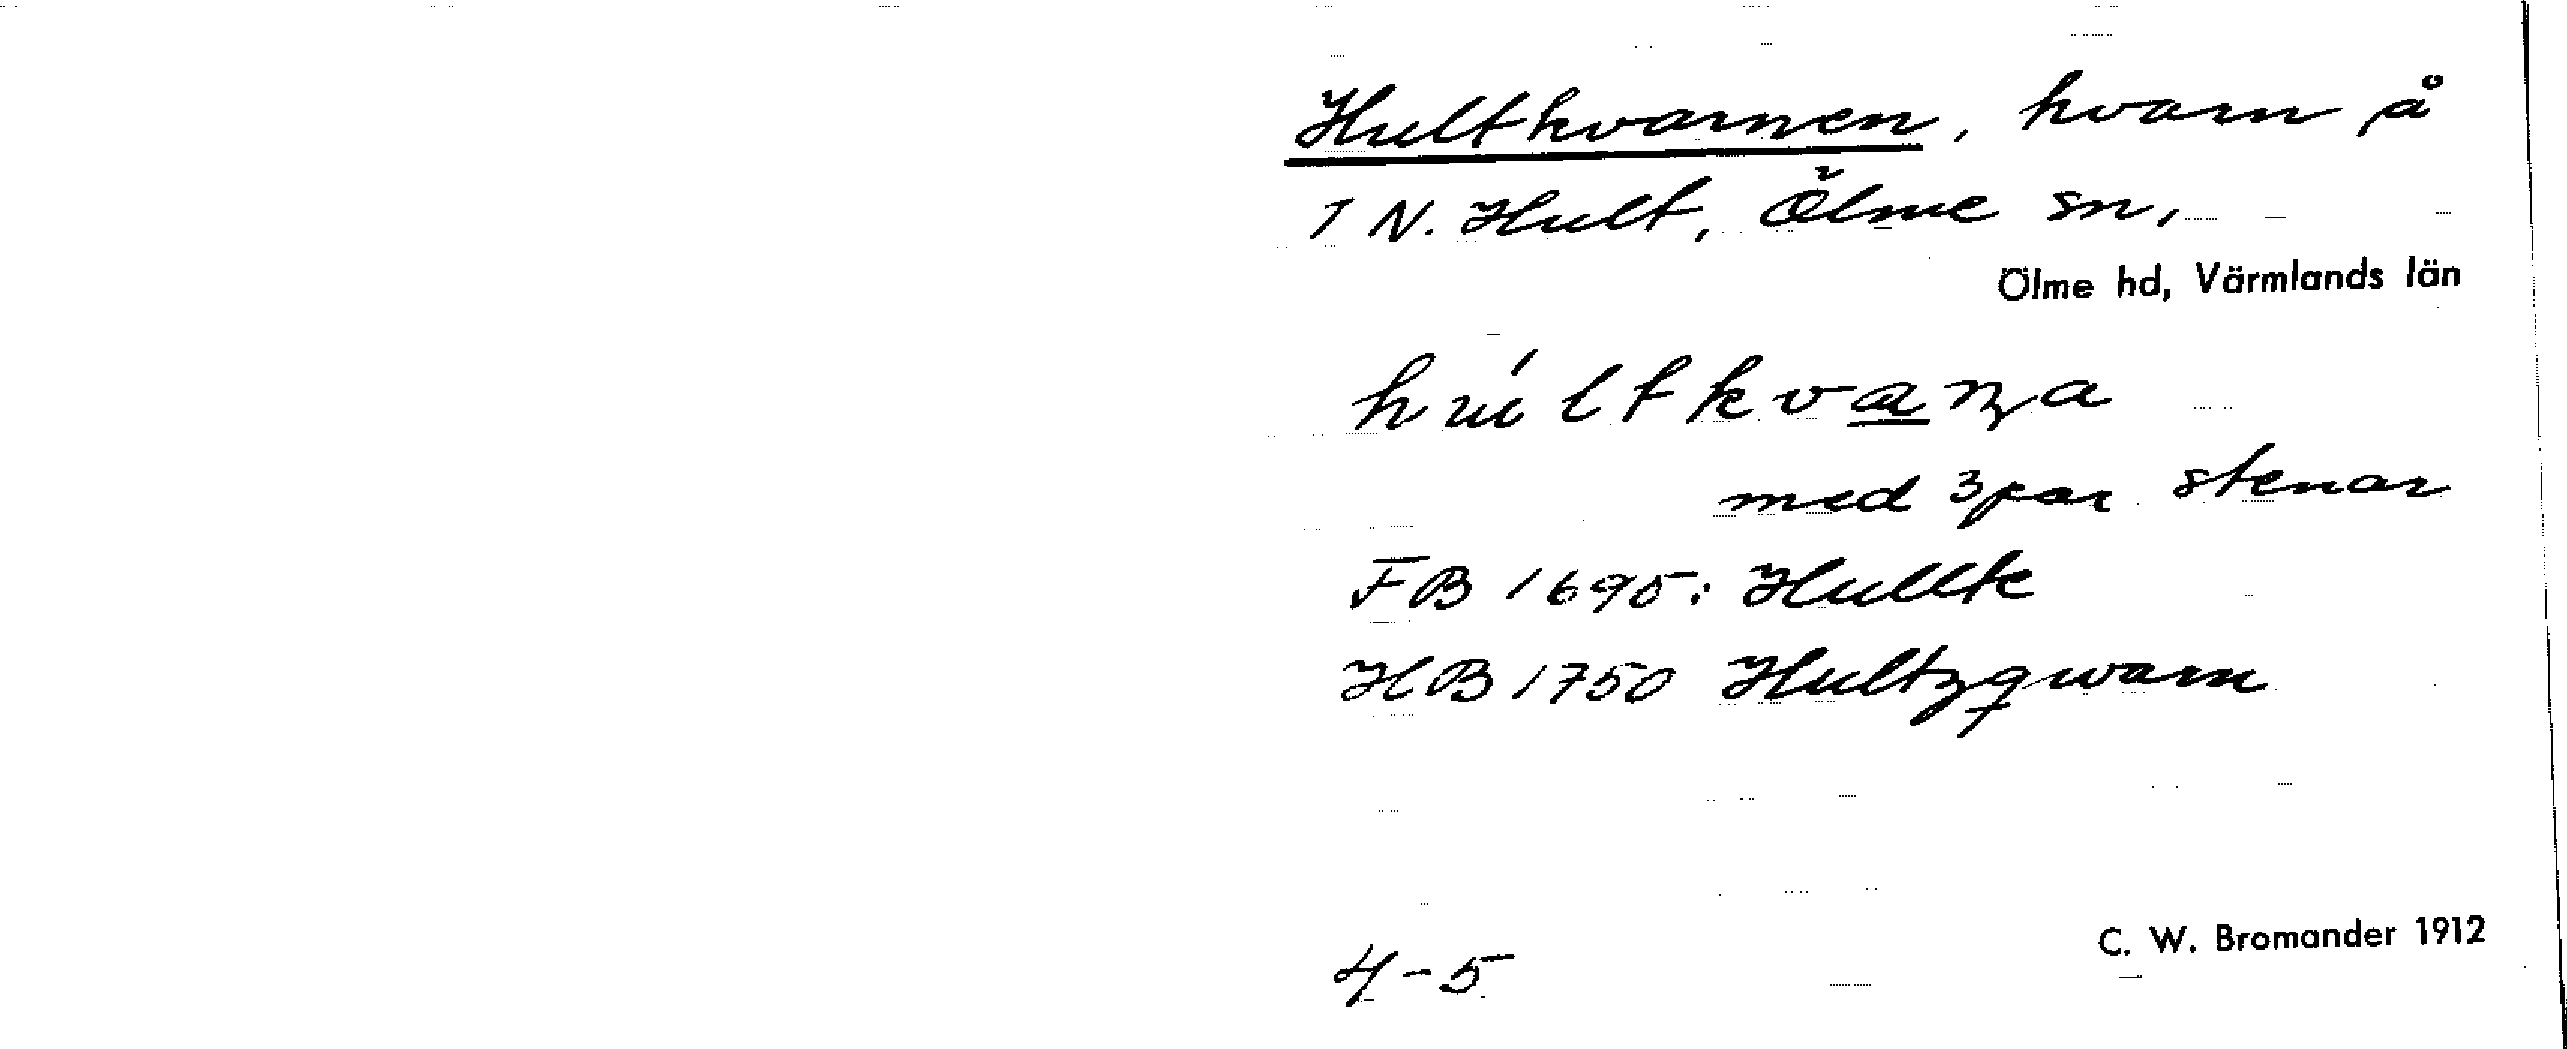 Hultkvarnen, kvarn å
1 N. Hult, Ölme sn,
Ölme hd, Värmlands län
húltkvaɳa
med 3 par stenar
FB 1695: Hullte
HB 1750 Hultzqwarn
4-5
C. W. Bromander 1912